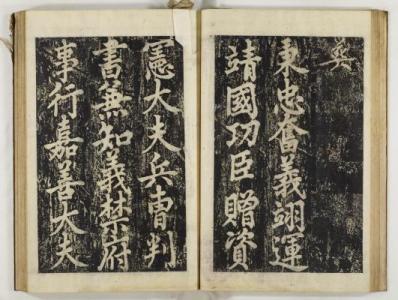 秉忠奮義翊運
靖國功臣贈資
憲大夫兵曹判
書兼知義禁府
事行嘉善大夫